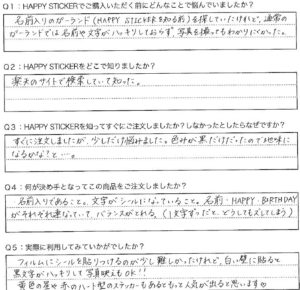 Q1：HAPPY STICKERでご購入いただく前にどんなことで悩んでいましたか？
名前入りのガーランド(HAPPY STICKERを知る前)を探していたけれど、通常の
ガーランドでは名前や文字がハッキリしておらず、写真を撮ってもわかりにくかった。
Q2：HAPPY STICKERをどこで知りましたか？
楽天のサイトで検索していて知った。
Q3：HAPPY STICKERを知ってすぐにご注文しましたか？しなかったとしたらなぜですか？
すぐに注文しましたが、少しだけ悩みました。色みが黒だけだったので地味に
なるかな？と…。
Q4：何が決め手となってこの商品をご注文しましたか？
名前入りであること。文字がシールになっていること。名前・HAPPY・BIRTHDAY
がそれぞれ連なっていて、バランスがとれる。(1文字ずつだと、どうしてもズレてしまう)
Q5：実際に利用してみていかがでしたか？
フィルムにシールを貼りつけるのが少し難しかったけれど、白い壁に貼ると
黒文字がハッキリして写真映えもOK!!
黄色の星や赤のハート型のステッカーもあるともっと人気が出ると思います